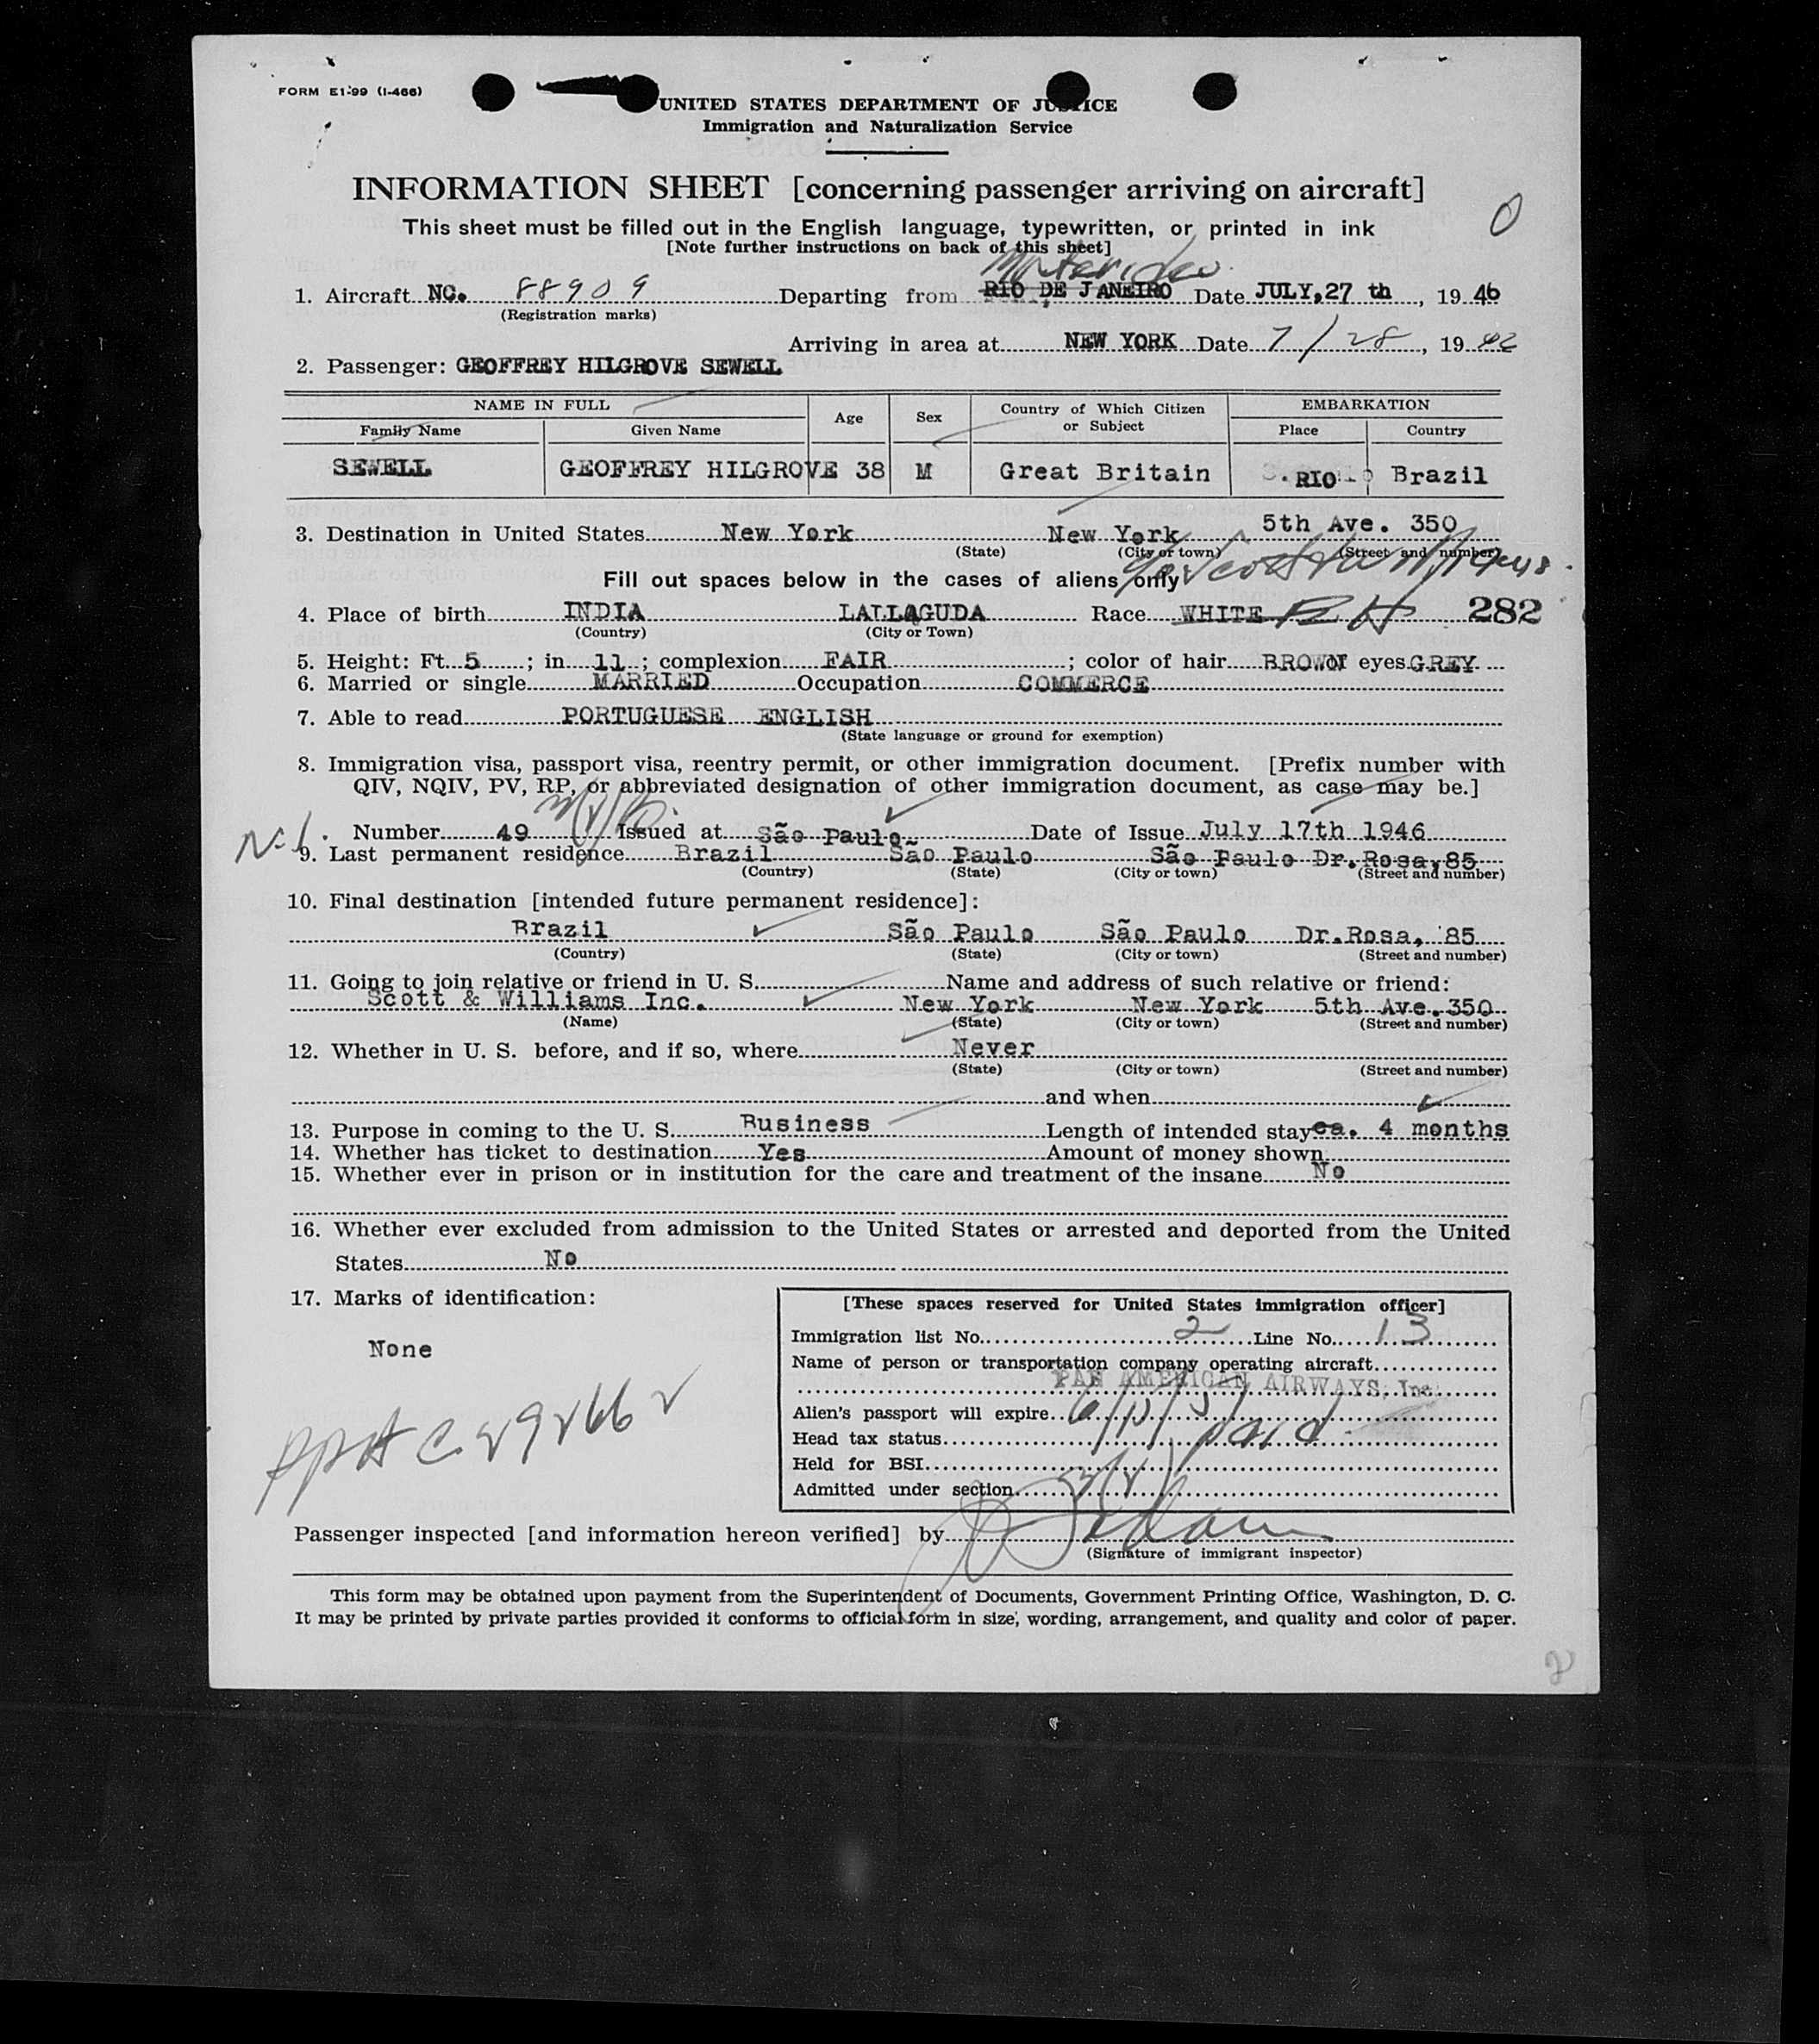 FORM E1-99 (I-466)
UNITED STATES DEPARTMENT OF JUSTICE
Immigration and Naturalization Service
INFORMATION SHEET [concerning passenger arriving on aircraft]
0
This sheet must be filled out in the English language, typewritten, or printed in ink
[Note further instructions on back of this sheet]
Montevideo
1. Aircraft NC. 88909 Departing from RIO DE JANEIRO Date JULY,27 th, 19 46
(Registration marks)
Arriving in area at NEW YORK Date 7/28, 19 46
2. Passenger: GEOFFREY HILGROVE SEWELL
NAME IN FULL Age Sex Country of Which Citizen or Subject EMBARKATION
Family Name Given Name Place Country
SEWELL GEOFFREY HILGROVE 38 M Great Britain RIO Brazil
3. Destination in United States New York New York 5th Ave. 350
(State) (City or town) (Street and number)
Fill out spaces below in the cases of aliens only
4. Place of birth INDIA LALLAGUDA Race WHITE 282
(Country) (City or Town)
5. Height: Ft. 5; in 11; complexion FAIR; color of hair BROWN of eyes GREY
6. Married or single MARRIED Occupation COMMERCE
7. Able to read PORTUGUESE ENGLISH
(State language or ground for exemption)
8. Immigration visa, passport visa, reentry permit, or other immigration document. [Prefix number with
QIV, NQIV, PV, RP, or abbreviated designation of other immigration document, as case may be.]
Number 49 Issued at São Paulo Date of Issue July 17th 1946
9. Last permanent residence Brazil São Paulo São Paulo Dr.Rosa,85
(Country) (State) (City or town) (Street and number)
10. Final destination [intended future permanent residence]:
Brazil São Paulo São Paulo Dr.Rosa, 85
(Country) (State) (City or town) (Street and number)
11. Going to join relative or friend in U. S. Name and address of such relative or friend:
Scott & Williams Inc. New York New York 5th Ave.350
(Name) (State) (City or town) (Street and number)
12. Whether in U. S. before, and if so, where Never
(State) (City or town) (Street and number)
and when
13. Purpose in coming to the U. S. Business Length of intended stay ca. 4 months
14. Whether has ticket to destination Yes Amount of money shown
15. Whether ever in prison or in institution for the care and treatment of the insane No
16. Whether ever excluded from admission to the United States or arrested and deported from the United
States No
17. Marks of identification:
None
[These spaces reserved for United States immigration officer]
Immigration list No. 2 Line No. 13
Name of person or transportation company operating aircraft
PAN AMERICAN AIRWAYS, Inc.
Alien's passport will expire
Head tax status paid
Held for BSI
Admitted under section
Passenger inspected [and information hereon verified] by
(Signature of immigrant inspector)
This form may be obtained upon payment from the Superintendent of Documents, Government Printing Office, Washington, D. C.
It may be printed by private parties provided it conforms to official form in size, wording, arrangement, and quality and color of paper.
2